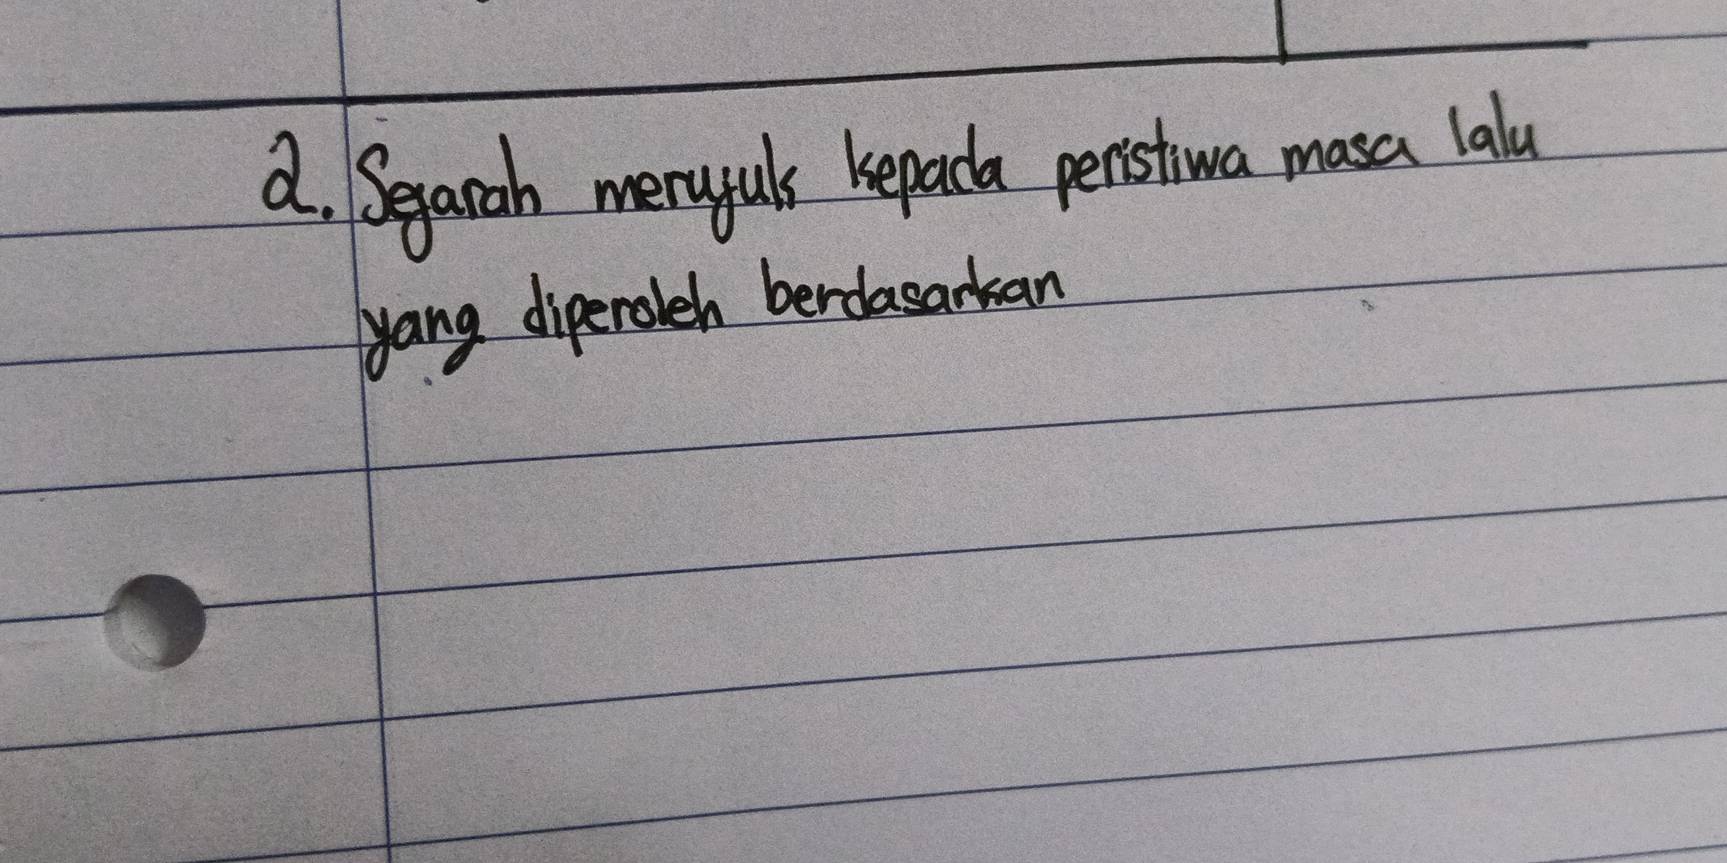 2. Sejarah merujuk kepada peristiwa masa lalu
yang diperoleh berdasarkan